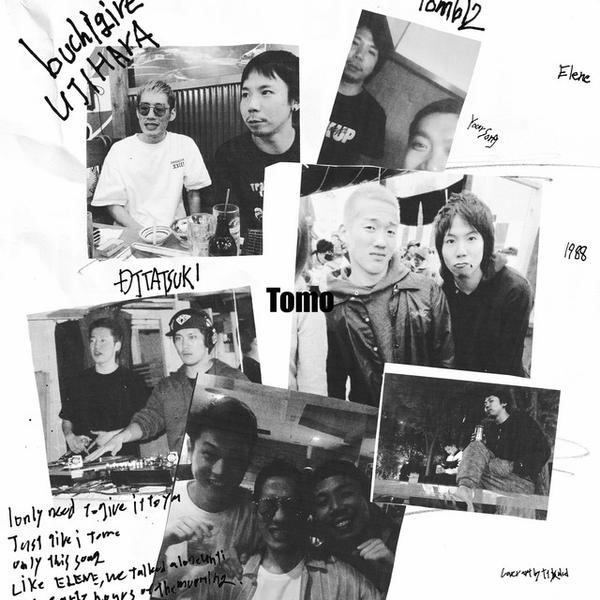 buch1give
UJIHARA
Tombl2
Elene
UP
Yoon Song
1988
DJTATSUKI
Tomo
I only need to give it to you
Just give it to me
only this song
Like ELENE, we talked alone until
early hours of the morning.
Cover art by